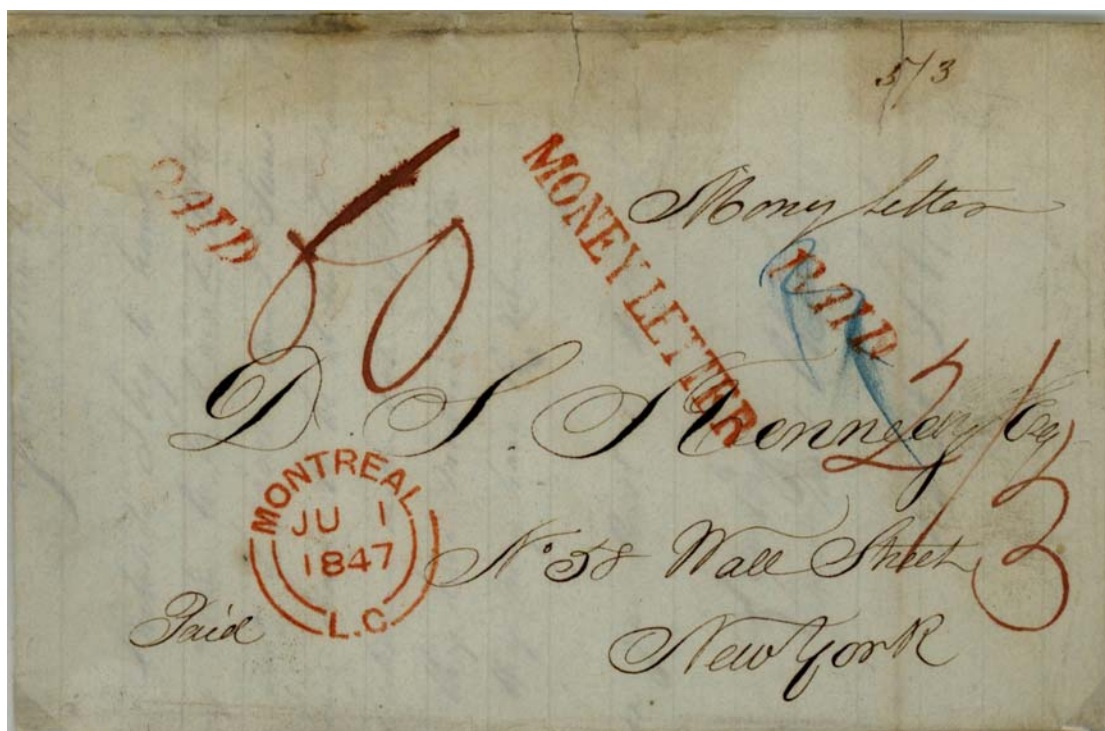 5/3
PAID
MONEY LETTER
Money Letter
PAID
D. S. Kennedy Esq
2/3
MONTREAL
JU 1
1847
L.C.
No 58 Wall Street
Paid
New York